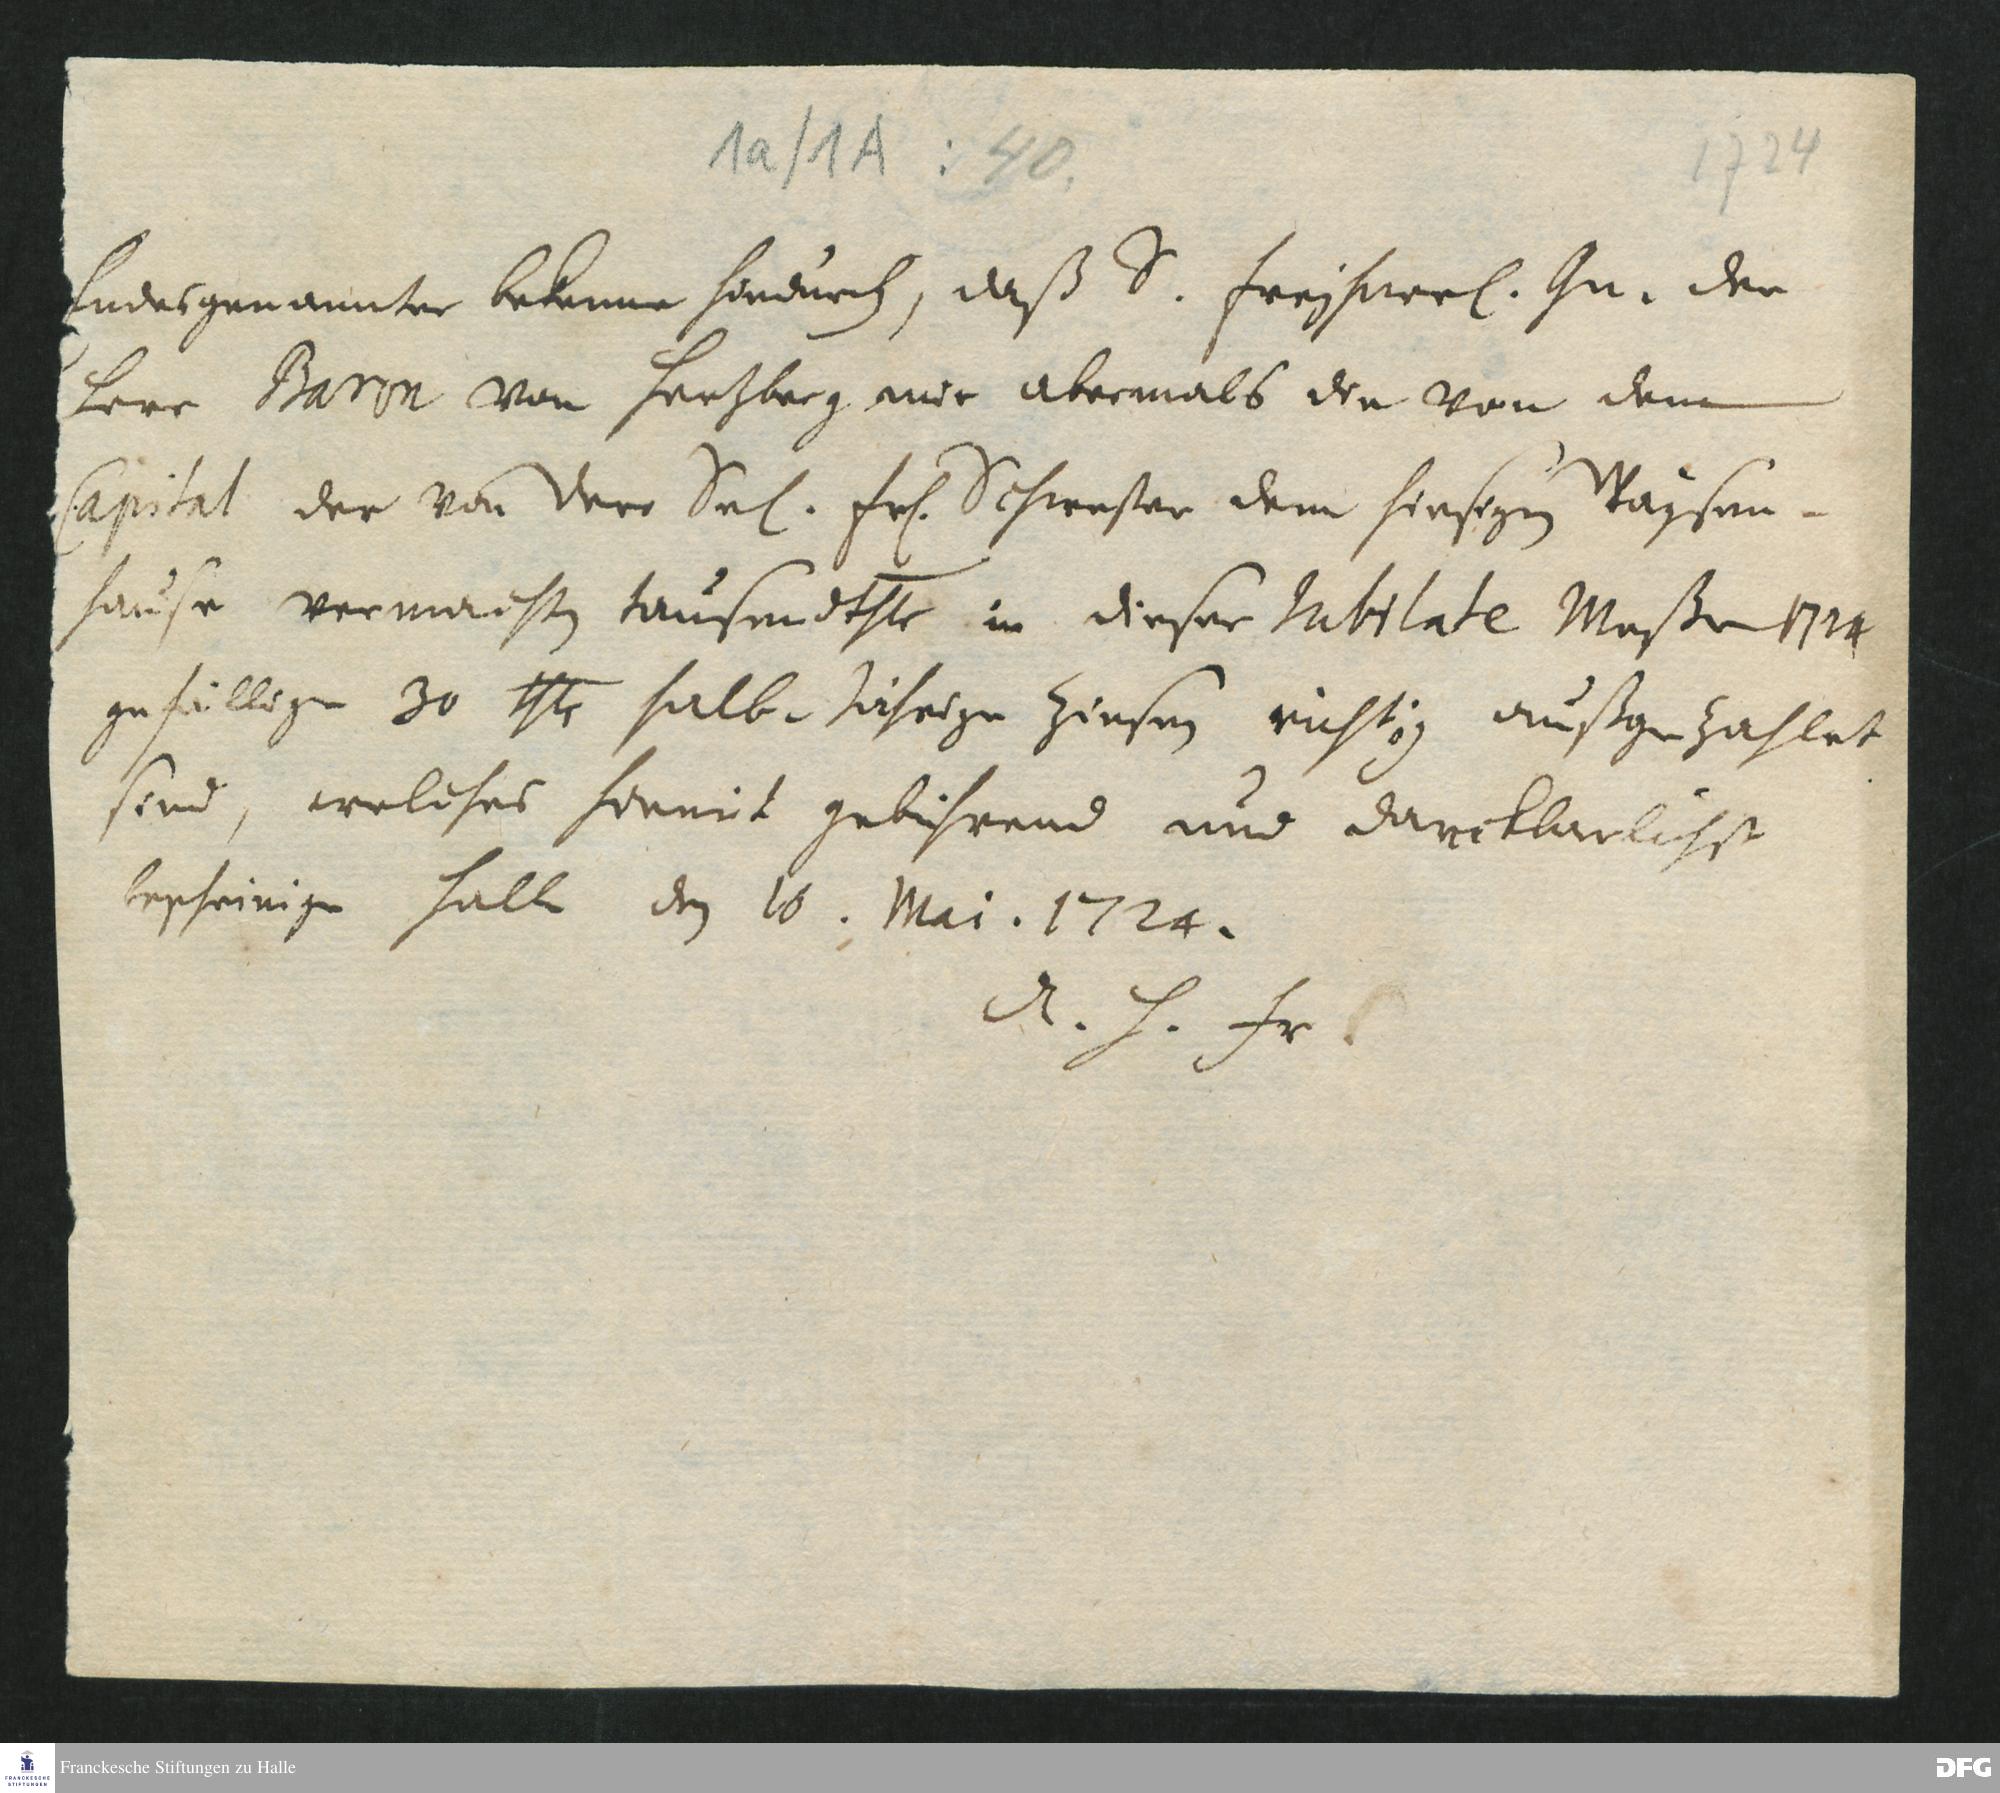 1a/1A : 40.
1724
Endesgenannter bekenne hiedurch, daß S. Freyherrl. Gn. der
Herr Baron von Hertzberg mir abermals die von dem
Capital der von Dero Sel. Frl. Schwester dem hiesigen Wäysen-
hause vermachten tausend thlr in dieser Jubilate Meße 1724
gefällige 30 thlr halb-Jährige Zinsen richtig außgezahlet
sind, welches hiemit gebührend und danckbarlichst
bescheinige Halle den 16. Mai. 1724.
A. H. Fr
Franckesche Stiftungen zu Halle
FRANCKESCHE
STIFTUNGEN
DFG